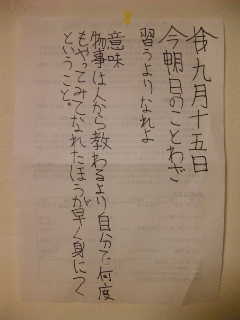 九月十五日
今朝日のことわざ
習うよりなれよ
意味
物事は人から教わるより自分で何度
もやってみてなれたほうが早く身につく
ということ。